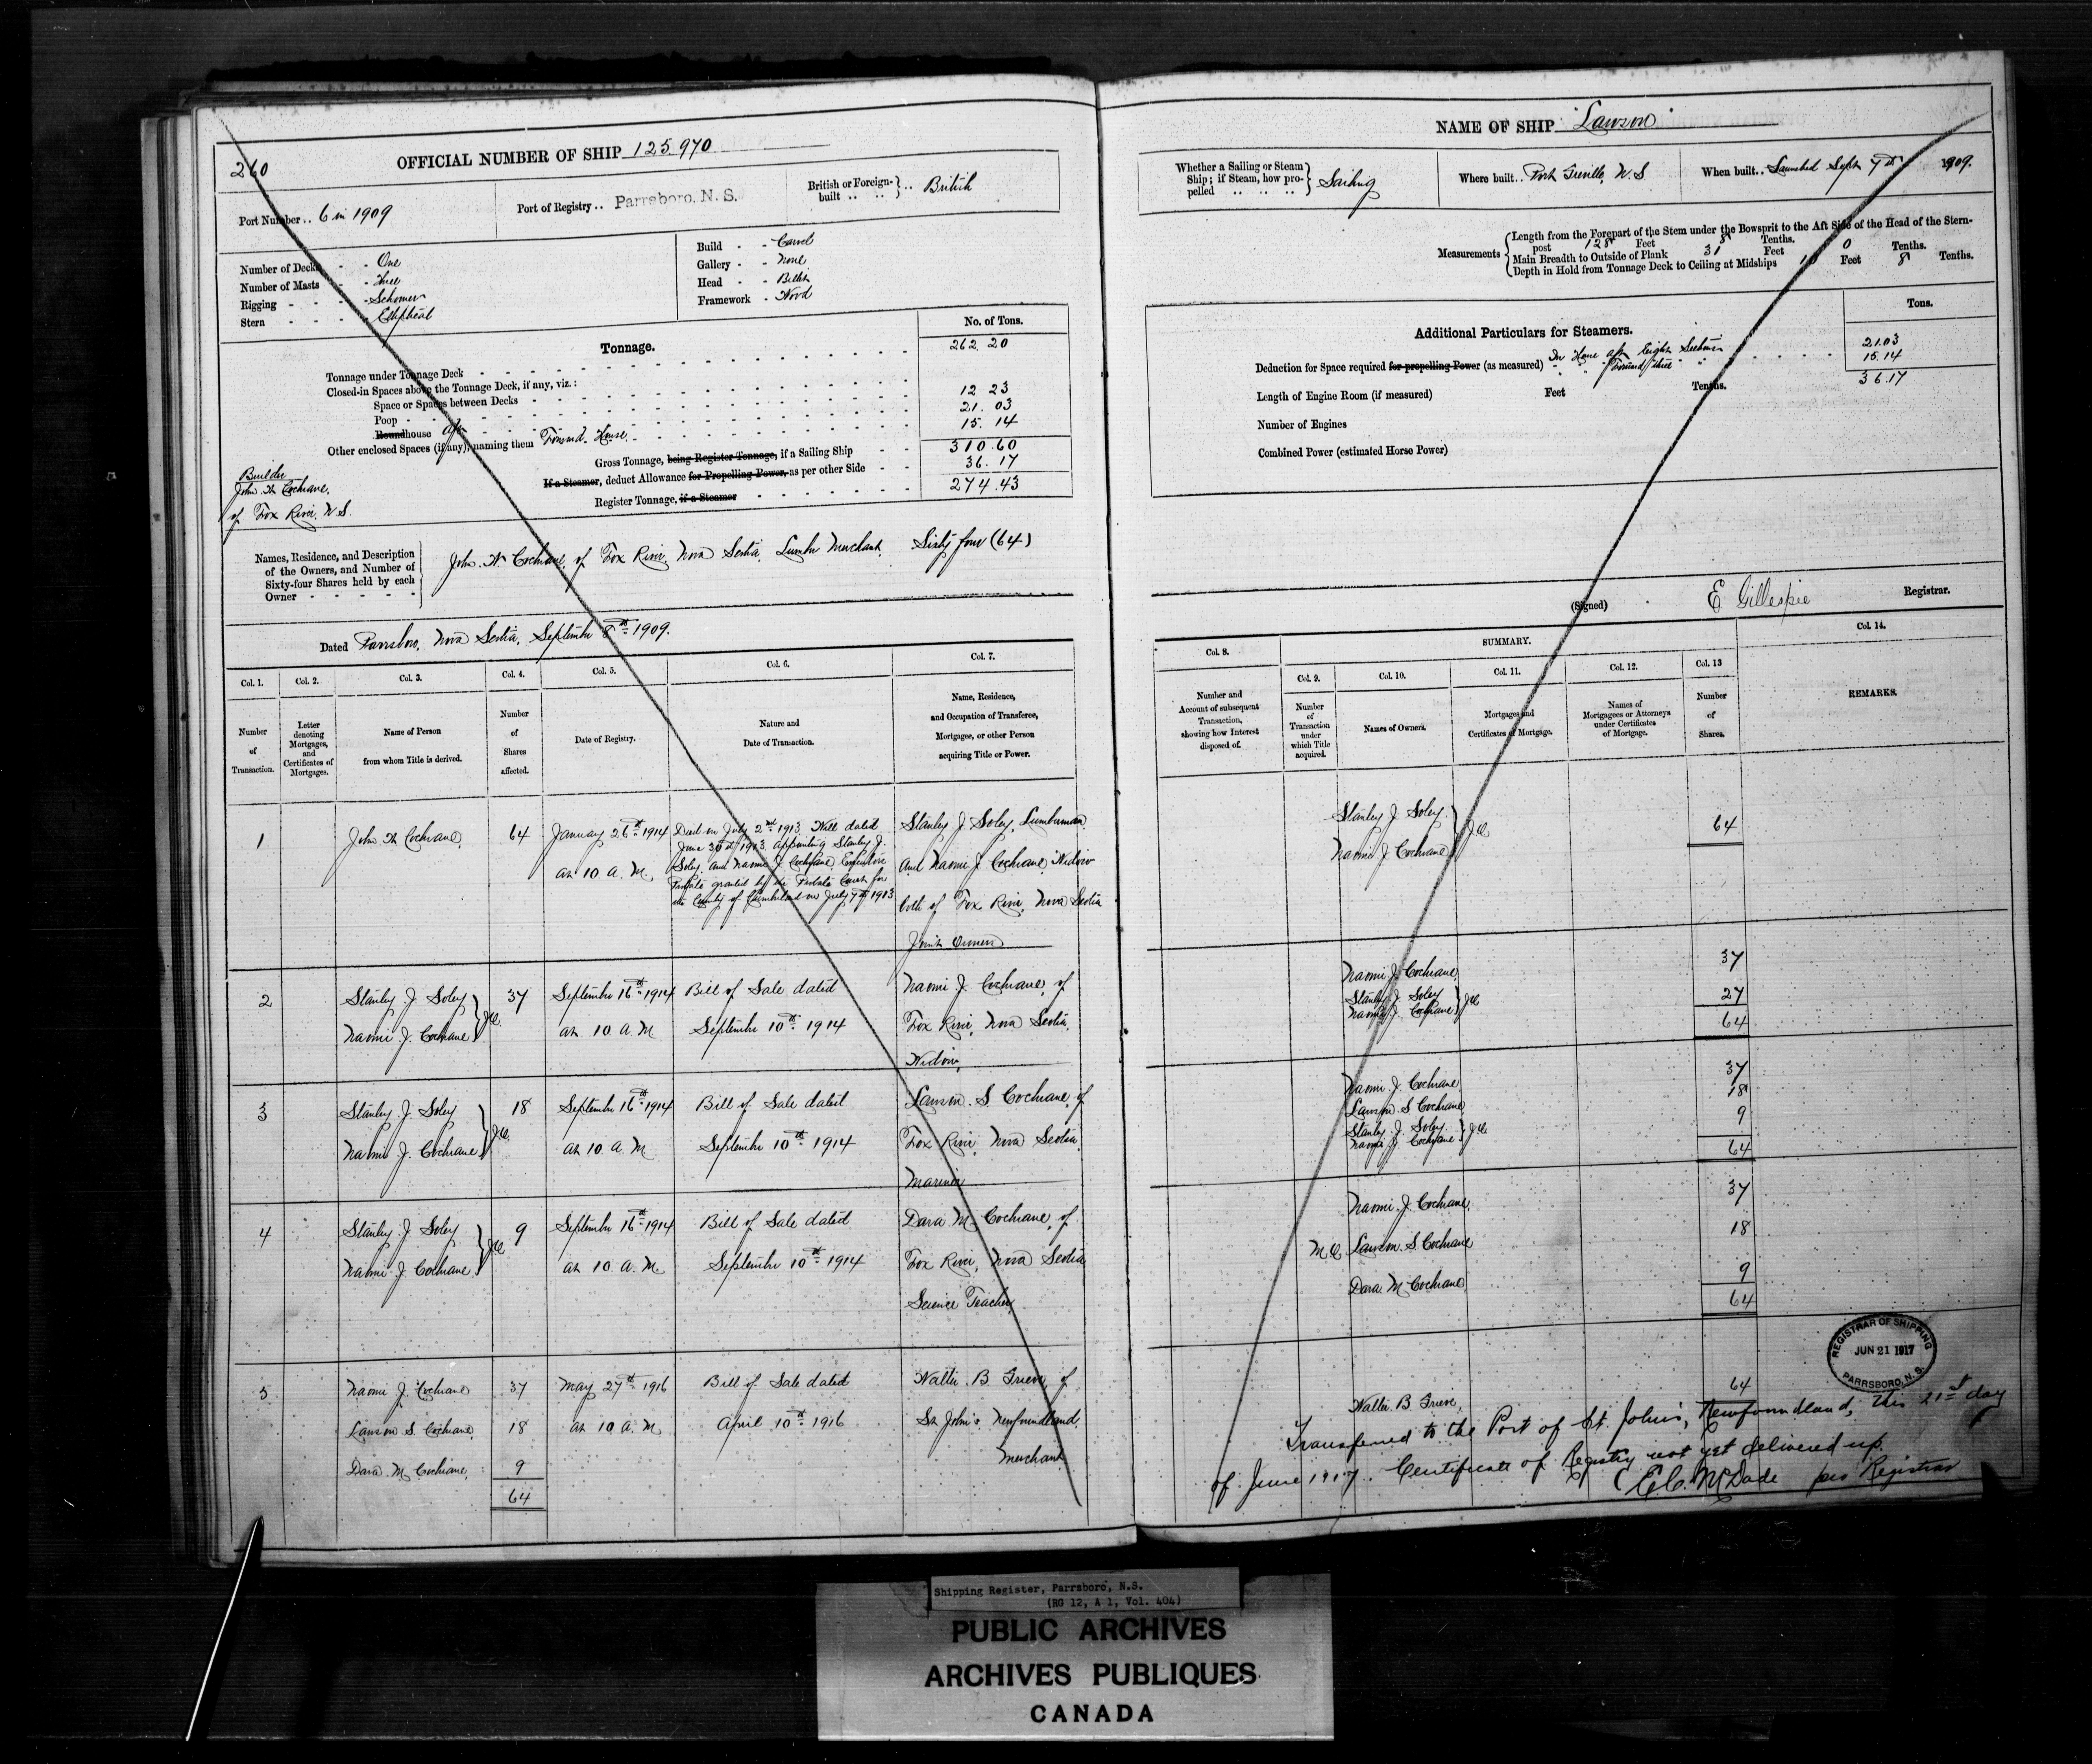 260
OFFICIAL NUMBER OF SHIP 125,970
Port Number .. 6 in 1909
Port of Registry .. Parrsboro, N. S.
British or Foreign-built .. .. } .. British
Number of Decks - - One
Number of Masts - - Three
Rigging - - - - Schooner
Stern - - - - Elliptical
Build - - Carvel
Gallery - - None
Head - - Billet
Framework - Wood
Tonnage.
No. of Tons.
Tonnage under Tonnage Deck 262.20
Closed-in Spaces above the Tonnage Deck, if any, viz.:
Space or Spaces between Decks
Poop 12 23
Roundhouse Aft 21.03
Other enclosed Spaces (if any), naming them Forward House 15.14
Gross Tonnage, being Register Tonnage, if a Sailing Ship 310.60
If a Steamer, deduct Allowance for Propelling Power, as per other Side 36.17
Register Tonnage, if a Steamer 274.43
Builder
John W Cochrane,
of Fox River, N.S.
Names, Residence, and Description
of the Owners, and Number of
Sixty-four Shares held by each
Owner - - - - -
John W Cochrane of Fox River, Nova Scotia, Lumber Merchant, Sixty four (64)
Dated Parrsboro, Nova Scotia, September 8th 1909.
Col. 1. Col. 2. Col. 3. Col. 4. Col. 5. Col. 6. Col. 7.
Number of Transaction.
Letter denoting Mortgages, and Certificates of Mortgages.
Name of Person from whom Title is derived.
Number of Shares affected.
Date of Registry.
Nature and Date of Transaction.
Name, Residence, and Occupation of Transferee, Mortgagee, or other Person acquiring Title or Power.
1
John W Cochrane,
64
January 26th 1914
at 10 A. M.
Died on July 2nd 1913 Will dated
June 30th 1913 appointing Stanley J.
Soley and Naomi J Cochrane Executors
Probate granted by the Probate Court for
the County of Cumberland on July 7th 1913
Stanley J Soley, Lumberman
And Naomi J. Cochrane, Widow
both of Fox River, Nova Scotia
Joint Owners
2
Stanley J. Soley
Naomi J. Cochrane } J.O.
37
September 16th 1914
at 10 A. M
Bill of Sale dated
September 10th 1914
Naomi J. Cochrane, of
Fox River, Nova Scotia,
Widow,
3
Stanley J. Soley
Naomi J. Cochrane } J.O.
18
September 16th 1914
at 10. A. M
Bill of Sale dated
September 10th 1914
Lawson. S. Cochrane, of
Fox River, Nova Scotia,
Mariner
4
Stanley J. Soley
Naomi J. Cochrane } J.O.
9
September 16th 1914
at 10. A. M.
Bill of Sale dated
September 10th 1914
Dara M. Cochrane, of
Fox River, Nova Scotia
Science Teacher
5
Naomi J. Cochrane 37
Lawson S. Cochrane, 18
Dara. M. Cochrane, 9
64
May 27th 1916
at 10 A. M.
Bill of Sale dated
April 10th 1916
Walter B Grieve, of
St John's Newfoundland,
Merchant
NAME OF SHIP "Lawson"
Whether a Sailing or Steam
Ship; if Steam, how pro-
pelled .. .. .. } Sailing
Where built .. Port Greville, N.S.
When built .. Launched Sept 7th 1909.
Measurements
Length from the Forepart of the Stem under the Bowsprit to the Aft Side of the Head of the Stern-
post 128 Feet 8 Tenths.
Main Breadth to Outside of Plank 31 Feet 0 Tenths.
Depth in Hold from Tonnage Deck to Ceiling at Midships Feet 8 Tenths.
Additional Particulars for Steamers.
Tons.
Deduction for Space required for propelling Power (as measured) In House aft Eight Seamen 21.03
" " Forward Three " 15.14
36.17
Length of Engine Room (if measured) Feet Tenths.
Number of Engines
Combined Power (estimated Horse Power)
(Signed) E Gillespie Registrar.
Col. 8. SUMMARY. Col. 14.
Col. 9. Col. 10. Col. 11. Col. 12. Col. 13
Number and Account of subsequent Transaction, showing how Interest disposed of.
Number of Transaction under which Title acquired.
Names of Owners.
Mortgages and Certificates of Mortgage.
Names of Mortgagees or Attorneys under Certificates of Mortgage.
Number of Shares.
REMARKS.
Stanley J. Soley
Naomi J Cochrane } J.O. 64
Naomi J. Cochrane 37
Stanley J. Soley
Naomi J. Cochrane } J.O. 27
64
Naomi J. Cochrane 37
Lawson. S Cochrane, 18
Stanley J. Soley
Naomi J. Cochrane } J.O. 9
64
Naomi. J. Cochrane, 37
M.O. Lawson. S. Cochrane 18
Dara. M Cochrane, 9
64
Walter. B Grieve, 64
REGISTRAR OF SHIPPING
JUN 21 1917
PARRSBORO, N. S.
Transferred to the Port of St. John's, Newfoundland, this 21st day
of June 1917. Certificate of Registry not yet delivered up.
E.C. McDade pro Registrar
Shipping Register, Parrsboro, N.S.
(RG 12, A 1, Vol. 404)
PUBLIC ARCHIVES
ARCHIVES PUBLIQUES
CANADA